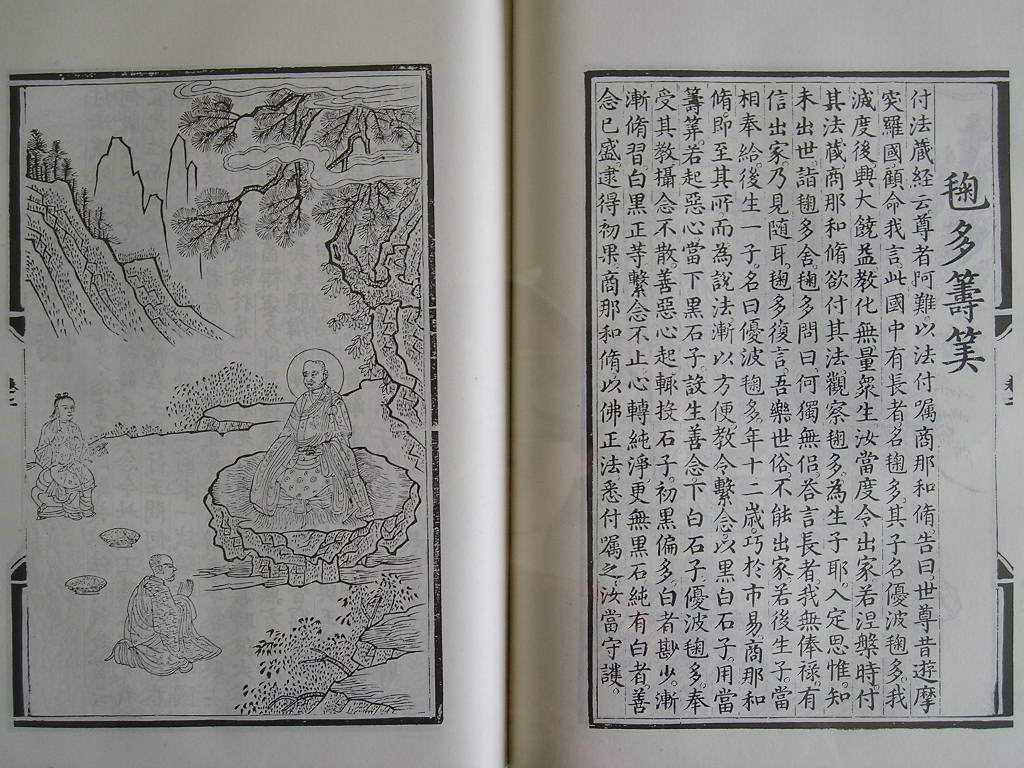 毱多籌筭
付法藏経云尊者阿難。以法付嘱商那和脩。告曰。世尊昔遊摩
突羅國。顧命我言。此國中有長者名毱多。其子名優波毱多。我
滅度後興大饒益教化無量衆生。汝當度令出家。若涅槃時付
其法藏。商那和脩欲付其法。觀察毱多。為生子耶。入定思惟。知
未出世。詣毱多舍。毱多問曰。何獨無侣。荅言長者。我無俸祿。有
信出家乃見随耳。毱多復言。吾樂世俗。不能出家。若後生子。當
相奉給。後生一子。名曰優波毱多。年十二歲。巧於市易。商那和
脩。即至其所而為説法。漸以方便教令繫念。以黒白石子用當
籌筭。若起惡心當下黒石子。設生善念。下白石子。優波毱多。奉
受其教。攝念不散。善惡心起輙投石子。初黒偏多。白者尠少。漸
漸脩習白黒正等。繫念不止。心轉純淨。更無黒石。純有白者。善
念已盛。逮得初果。商那和脩。以佛正法悉付嘱之。汝當守護。